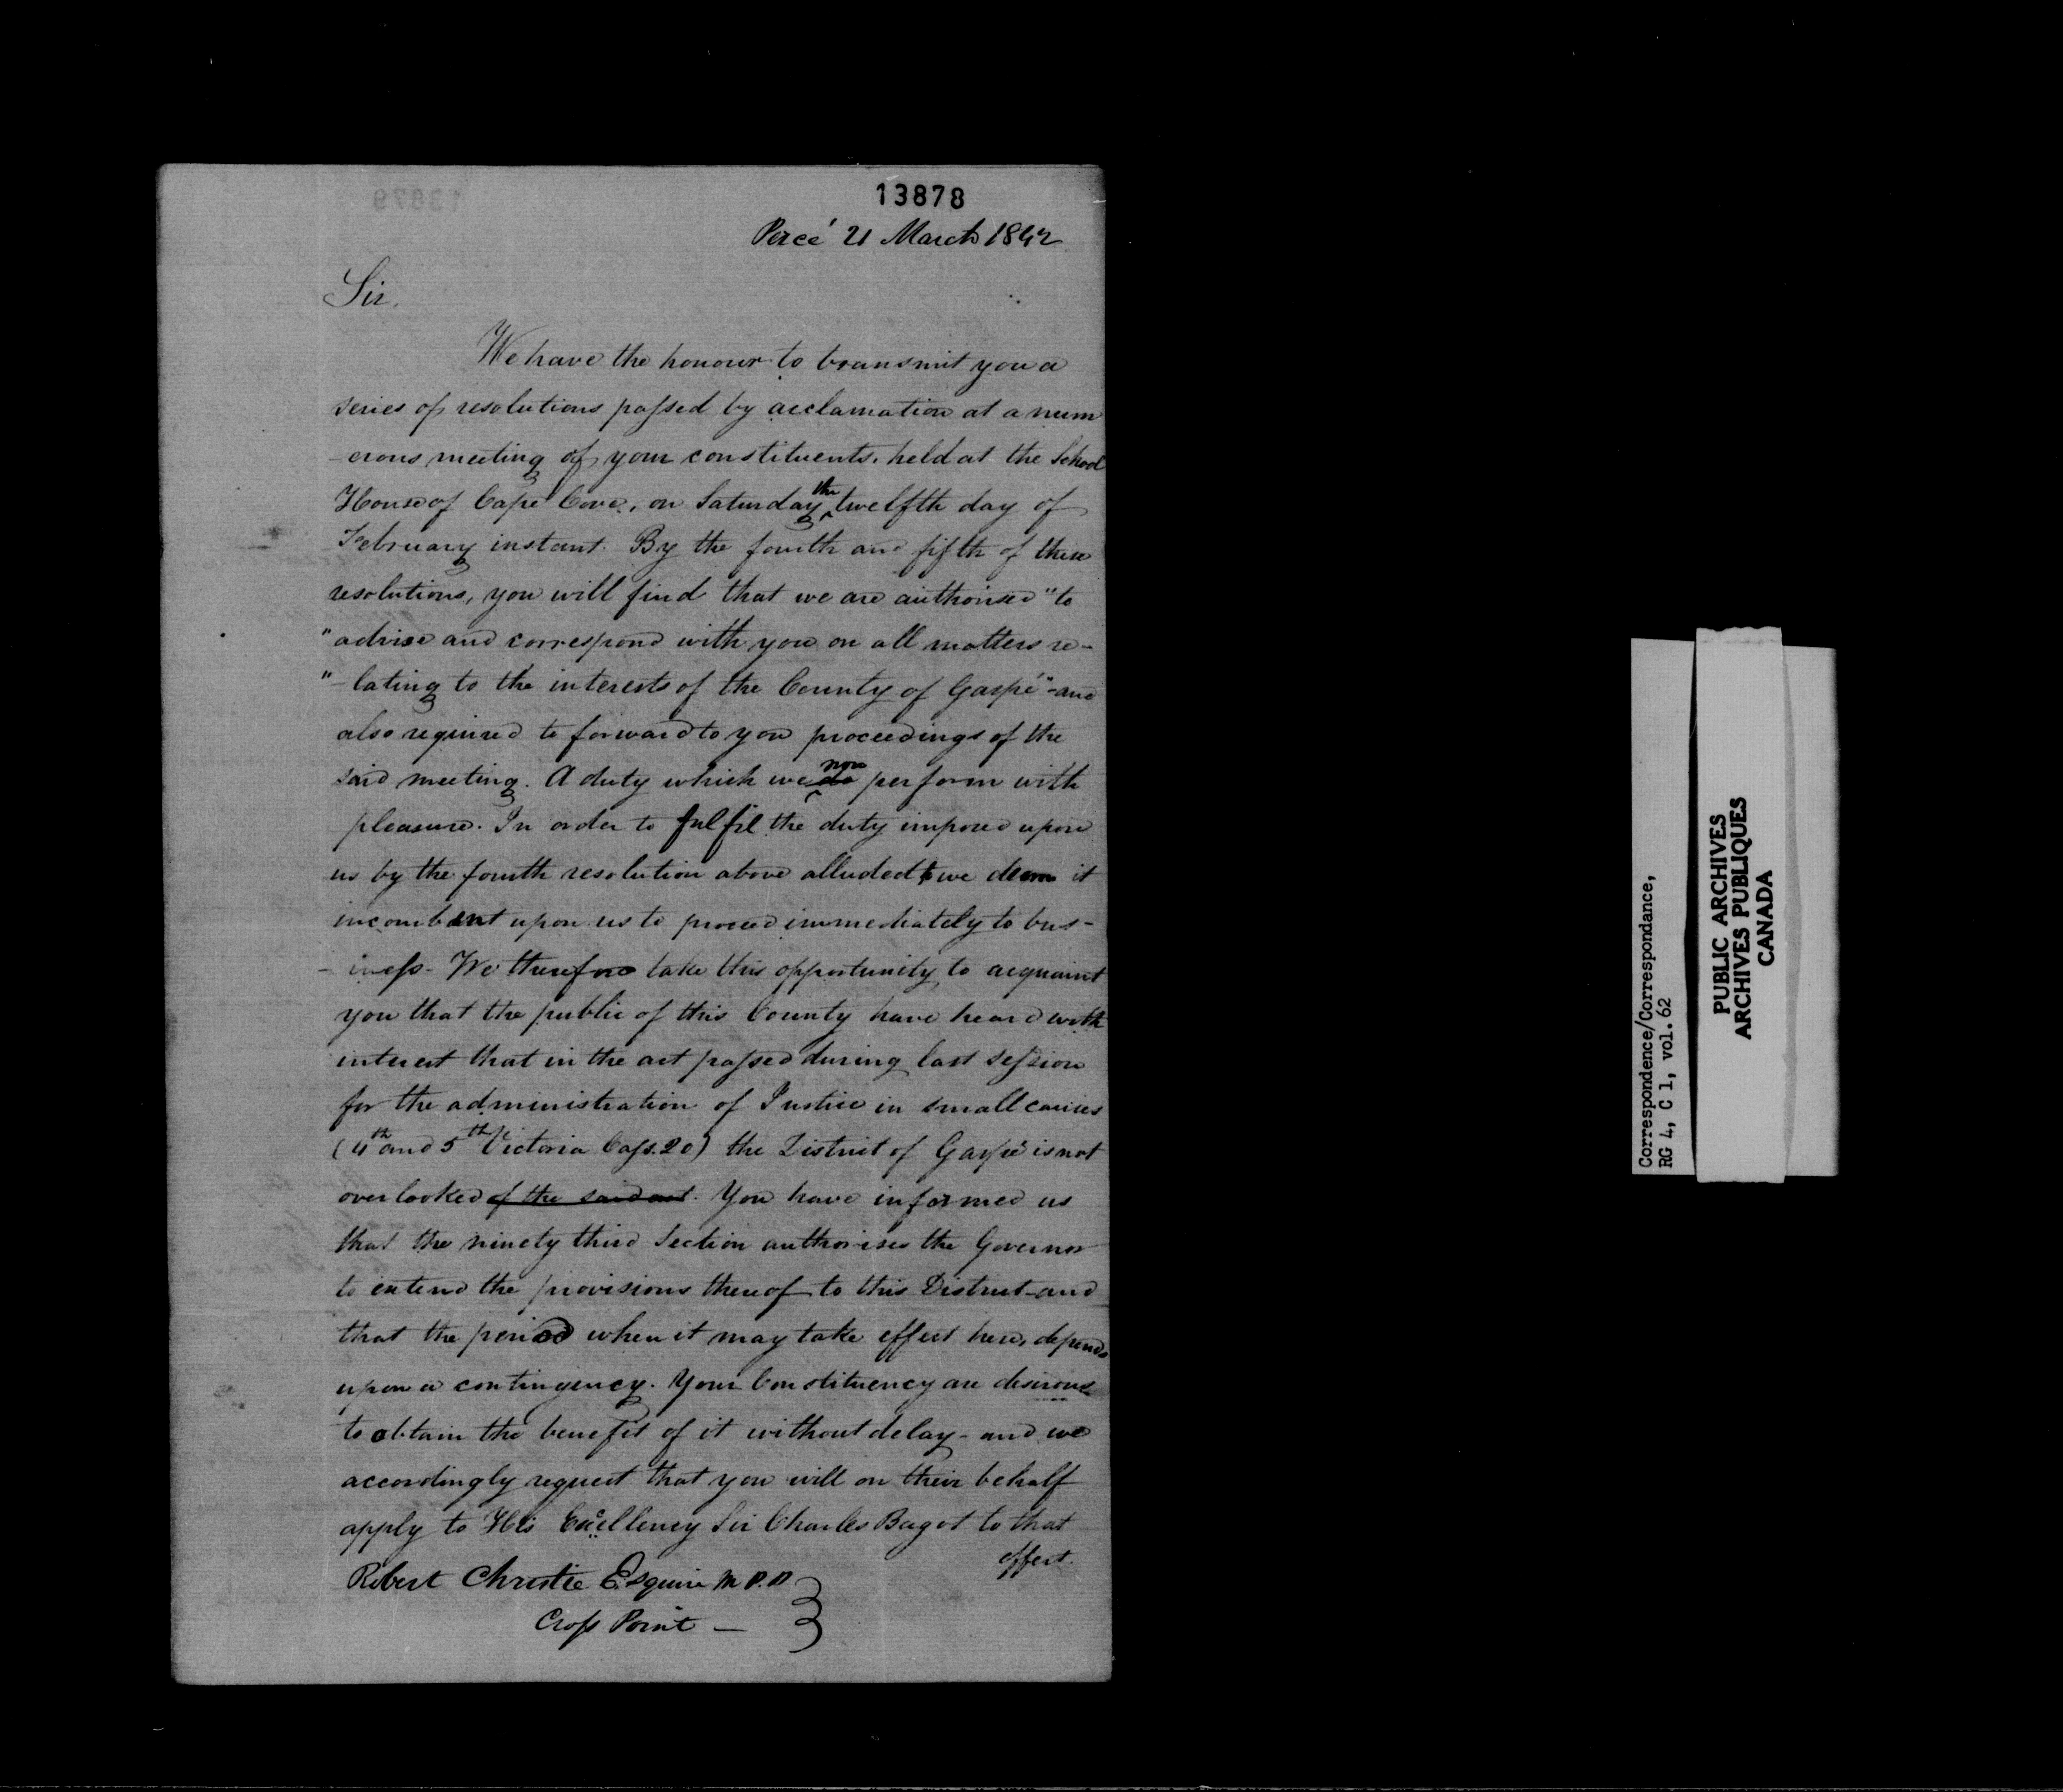 13878
Percé 21 March 1842
Sir.
We have the honour to transmit you a
series of resolutions passed by acclamation at a num
-erous meeting of your constituents, held at the School
House of Cape Cove, on Saturday the twelfth day of
February instant. By the fourth and fifth of these
resolutions, you will find that we are authorised "to
"advise and correspond with you on all matters re-
"-lating to the interests of the County of Gaspé"-and
also required to forward to you proceedings of the
said meeting. A duty which we do now perform with
pleasure. In order to fulfil the duty imposed upon
us by the fourth resolution above alluded to we deem it
incombent upon us to proceed immediately to bus-
-iness- We therefore take this opportunity to acquaint
you that the public of this County have heard with
interest that in the act passed during last session
for the administration of Justice in small causes
(4th and 5th Victoria Cap. 20) the District of Gaspé is not
overlooked of the said act. You have informed us
that the ninety third Section authorises the Governor
to extend the provisions thereof to this District-and
that the period when it may take effect here, depends
upon a contingency. Your Constituency are desirous
to obtain the benefit of it without delay - and we
accordingly request that you will on their behalf
apply to His Excellency Sir Charles Bagot to that
effect.
Robert Christie Esquire M.P.P.
Cross Point —
Correspondence/Correspondance,
RG 4, C 1, vol. 62
PUBLIC ARCHIVES
ARCHIVES PUBLIQUES
CANADA